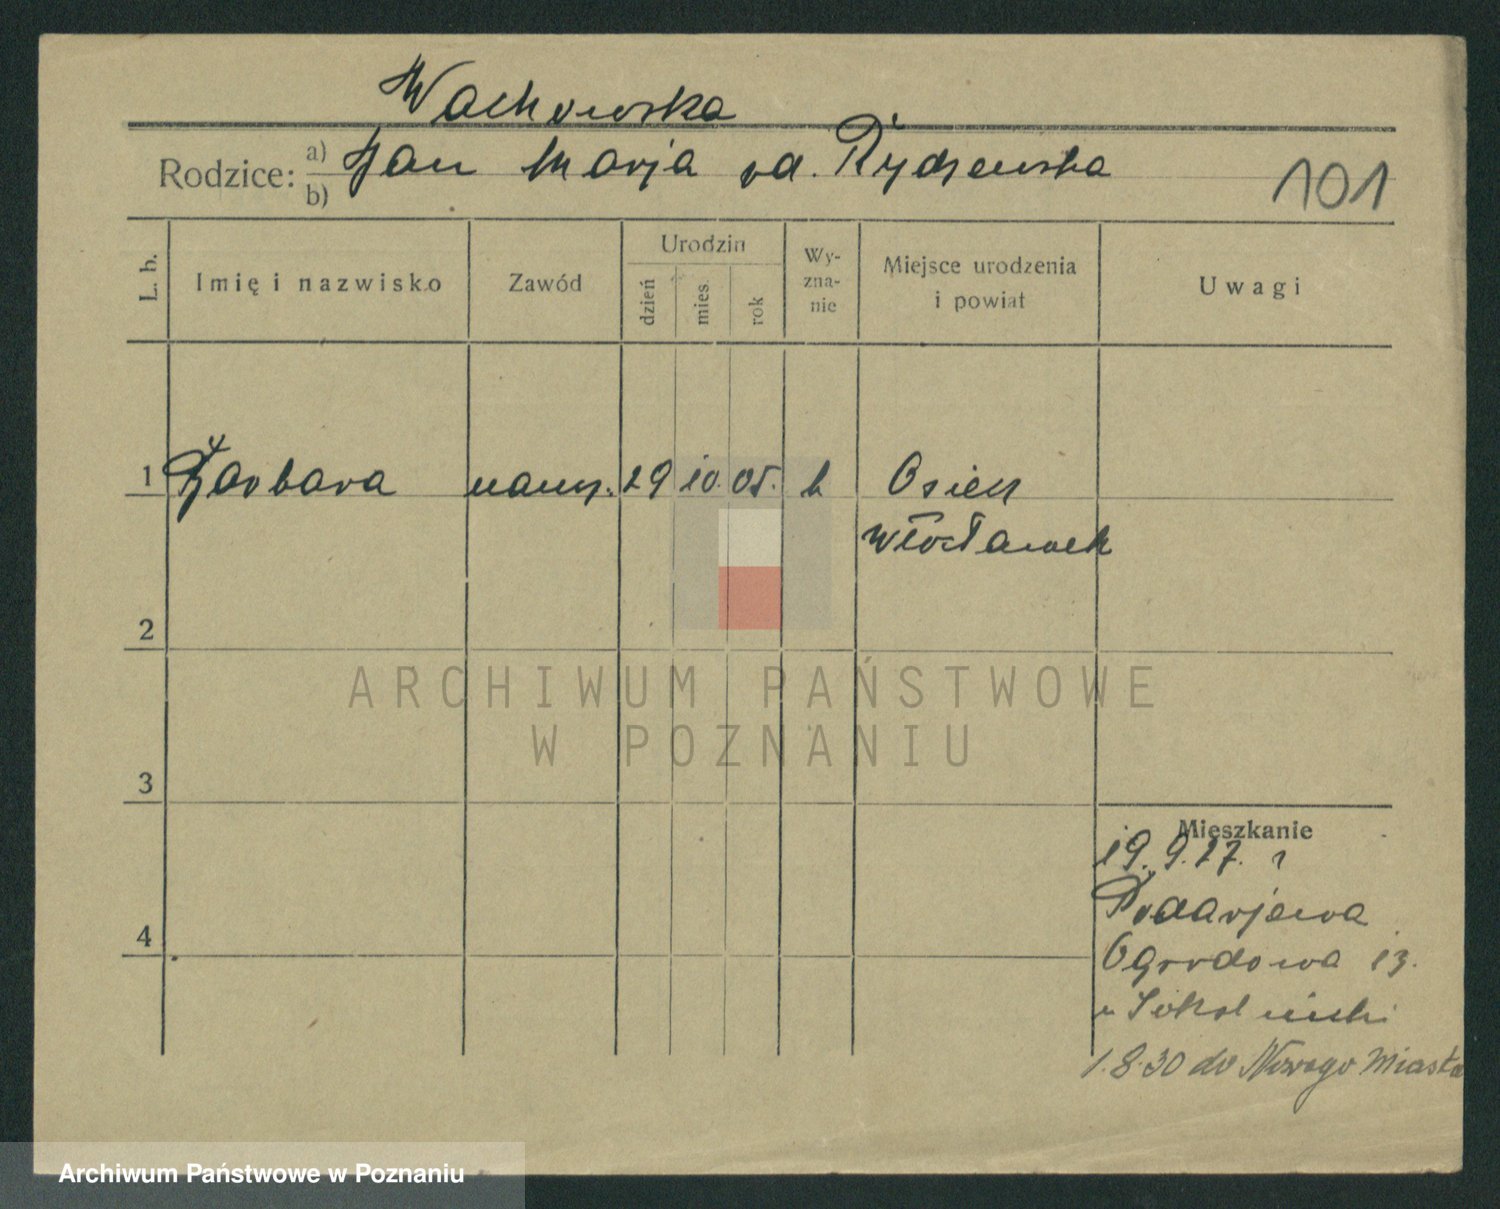 Wachowska
Rodzice: a) Jan Marja od. Rydzewska
b)
101
L. b.
Imię i nazwisko
Zawód
Urodzin
dzień
mies.
rok
Wy-
zna-
nie
Miejsce urodzenia
i powiat
Uwagi
1 Barbara naucz. 29 10. 05. k Osiek
Włocławek
2
3
4
Mieszkanie
19.9.27.
Podarjewa
Ogrodowa 13.
u Sokolnicki
1.8.30 do Nowego Miasta
ARCHIWUM PAŃSTWOWE
W POZNANIU
Archiwum Państwowe w Poznaniu